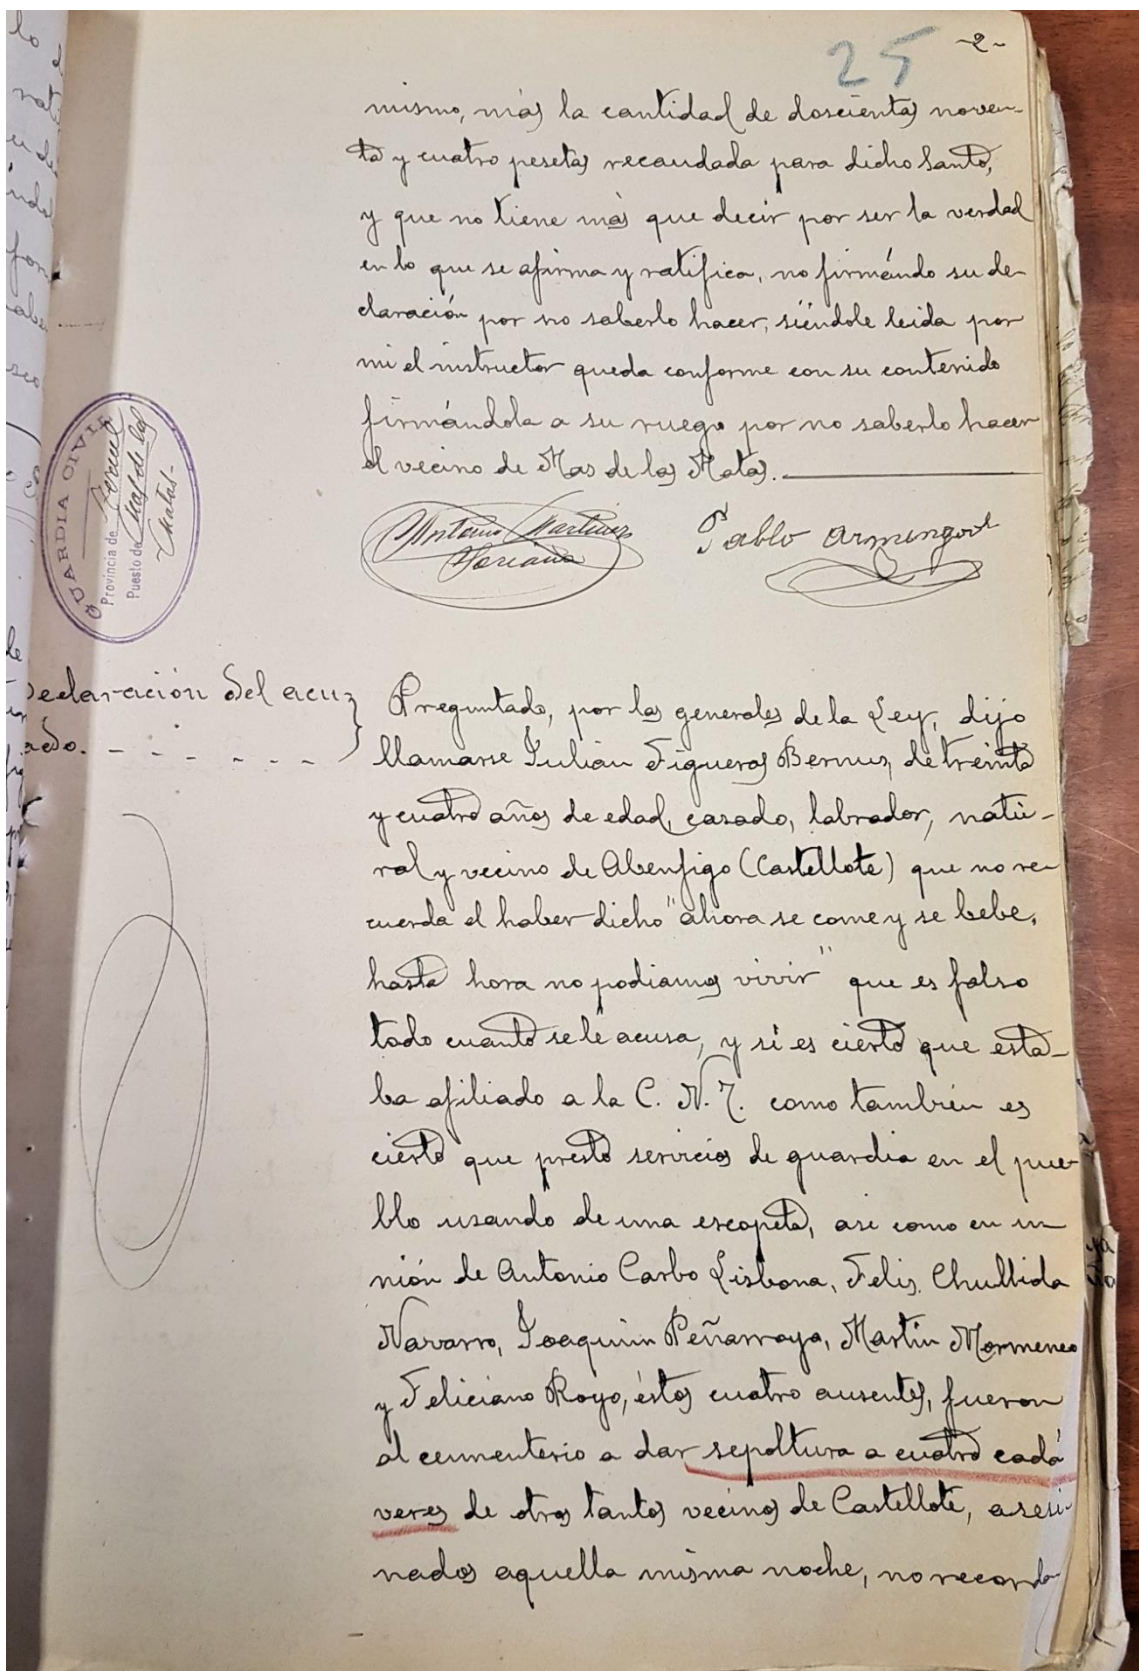 25 -2-
mismo, más la cantidad de doscientas noven-
ta y cuatro pesetas recaudada para dicho Santo,
y que no tiene más que decir por ser la verdad
en lo que se afirma y ratifica, no firmándo su de-
claración por no saberlo hacer, siéndole leida por
mi el instructor queda conforme con su contenido
firmándola a su ruego por no saberlo hacer
el vecino de Mas de las Matas.
Antonio Martinez
Soriano
Pablo Armengol
GUARDIA CIVIL
Provincia de Teruel
Puesto de Mas de las
Matas-
Declaración del acu-
sado. - - - - - -
Preguntado, por las generales de la Ley, dijo
llamarse Julián Figueras Bernus, de treinta
y cuatro años de edad, casado, labrador, natu-
ral y vecino de Abenfigo (Castellote) que no re-
cuerda el haber dicho "ahora se come y se bebe,
hasta hora no podiamos vivir" que es falso
todo cuanto se le acusa, y si es cierto que esta-
ba afiliado a la C. N. T. como también es
cierto que prestó servicios de guardia en el pue-
blo usando de una escopeta, asi como en u-
nión de Antonio Carbo Lisbona, Felis Chullida
Navarro, Joaquin Peñarroya, Martin Mormeneo
y Feliciano Royo, éstos cuatro ausentes, fueron
al cementerio a dar sepoltura a cuatro cadá
veres de otros tantos vecinos de Castellote, asesi-
nados aquella misma noche, no recorda